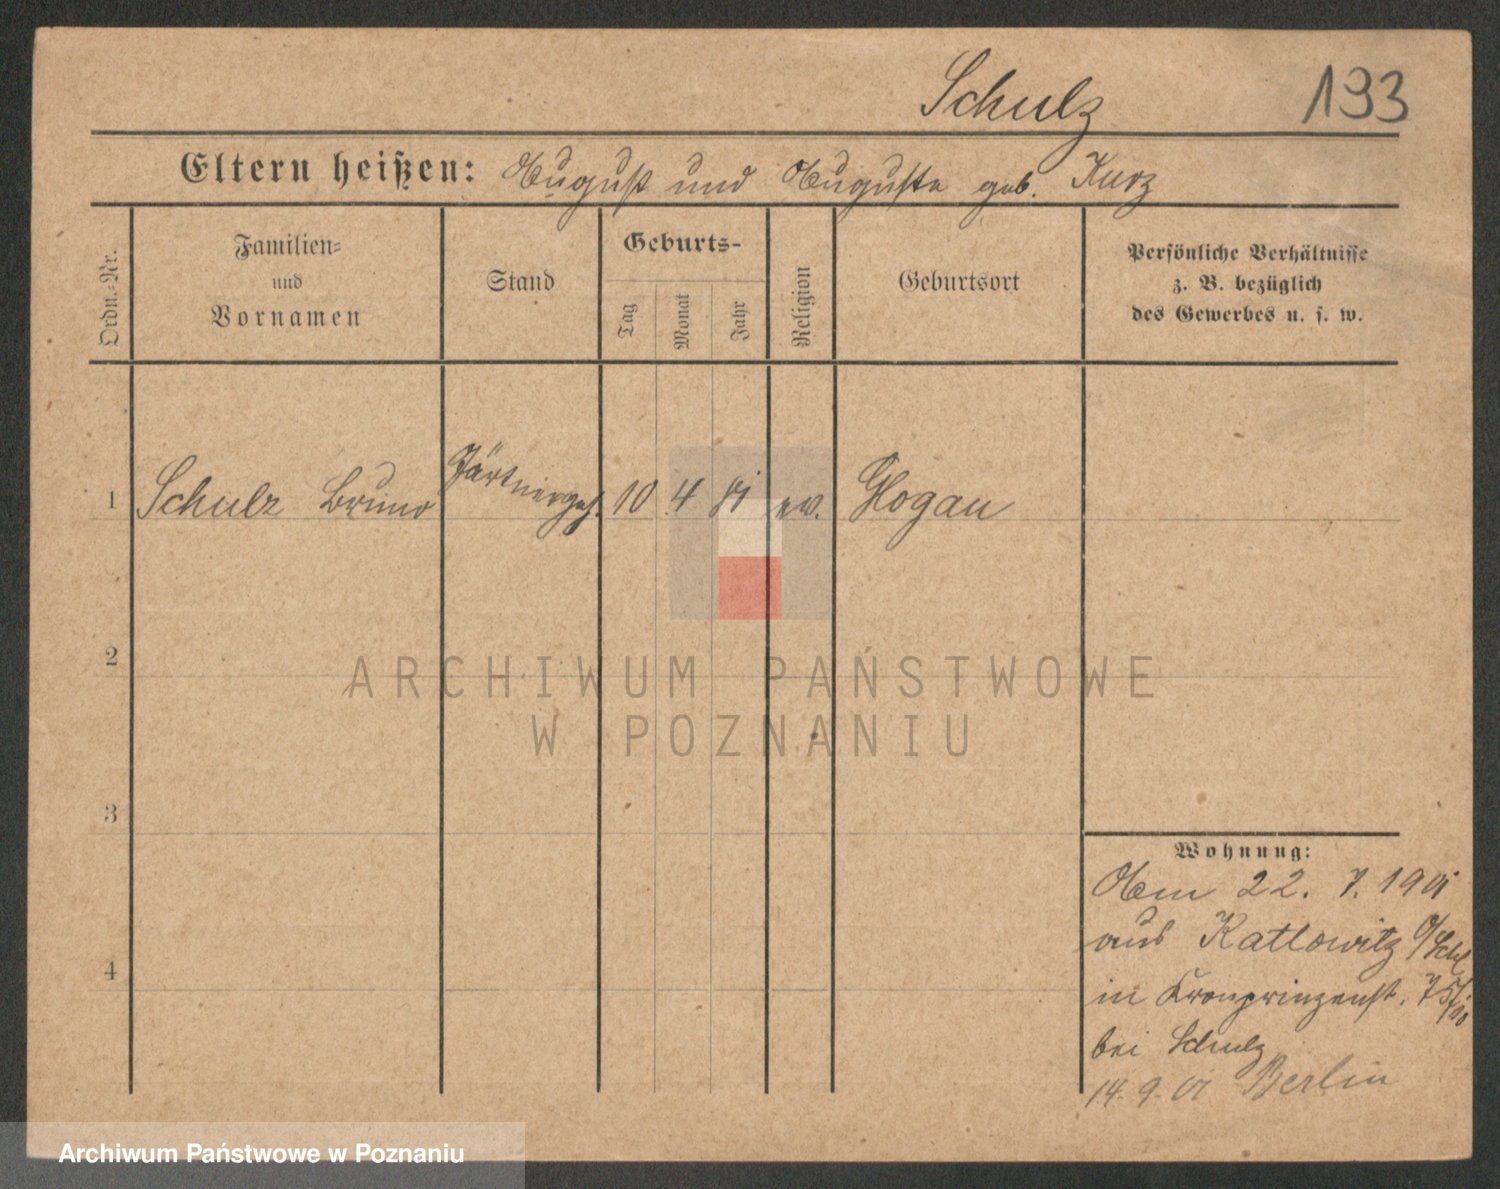 Schulz 193
Eltern heißen: August und Auguste geb. Kurz
Ordn.-Nr.
Familien-
und
Vornamen
Stand
Geburts-
Tag
Monat
Jahr
Religion
Geburtsort
Persönliche Verhältnisse
z. B. bezüglich
des Gewerbes u. s. w.
1 Schulz Bruno Gärtnergeh. 10 4 81 ev. Glogau
2
3
4
Wohnung:
Am 22. 7. 1901
aus Kattowitz O/Schl
in Kronprinzenst. 75
bei Schulz
14. 9. 01 Berlin
ARCHIWUM PAŃSTWOWE
W POZNANIU
Archiwum Państwowe w Poznaniu